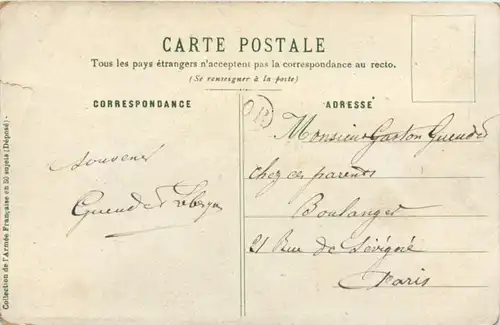 CARTE POSTALE
Tous les pays étrangers n'acceptent pas la correspondance au recto.
(Se renseigner à la poste)
CORRESPONDANCE
ADRESSE
OR
Monsieur Gaston
chez ces parents
Boulanger
21 Rue de Sévigné
Paris
Souvenir
Collection de l'Armée Française en 50 sujets (Déposé).